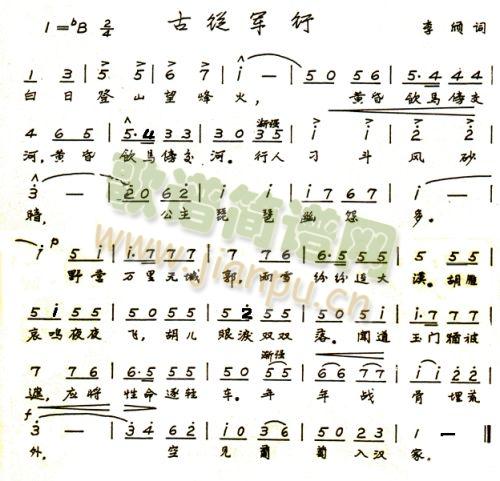 1=♭B 2/4 古從军行 李颀 词
1 3 5 5 | 6 7 | i — | 5 0 5 6 | 5·4 4 4 |
白日登山望烽火， 黄昏饮马傍交
4 6 5 | 5·4 3 3 | 3 0 3 5 | i i | 2 2 |
渐强
河。黄昏 饮马傍交 河。行人 刁斗 风砂
3 — | 2 0 6 2 | i i | i 7 6 7 | i — |
暗， 公主 琵琶 幽怨 多。
i p 5 i | i·7 7 7 | 7 7 6 | 6·5 5 5 | 5 5 5 |
野营 万里无城 郭，雨雪 纷纷连大 漠。胡雁
5 i 5 5 | 5 0 5 5 | 5 2 5 5 | 5 0 5 i | i·7 7 7 |
哀鸣夜夜 飞，胡儿 眼泪双双 落。闻道 玉门犹被
渐强
7 7 6 | 6·5 5 5 | 5 0 5 5 | 6 6 7 7 | i i 2 2 |
遮，应将 性命逐轻 车。年年 年战 骨埋荒
f
3 — | 3 4 6 2 | i 0 3 6 | 5 0 2 3 | 1 — ‖
外。 空 见葡 萄入汉 家。
歌谱简谱网
www.jianpu.cn